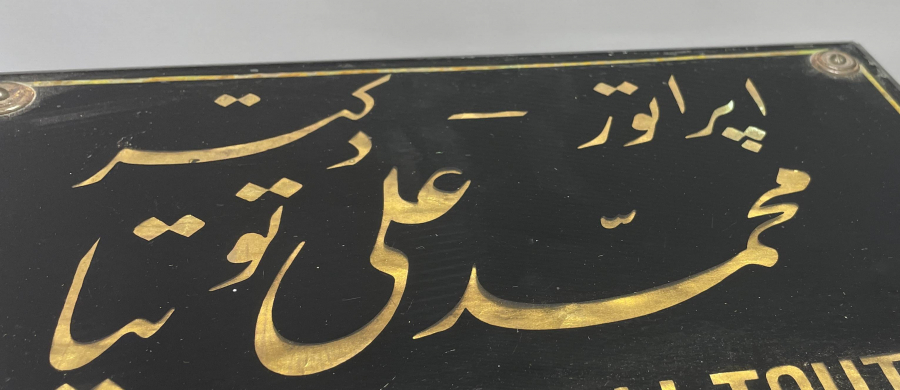 اپراتور – دکتر
محمّد علی توتیا
TOUT